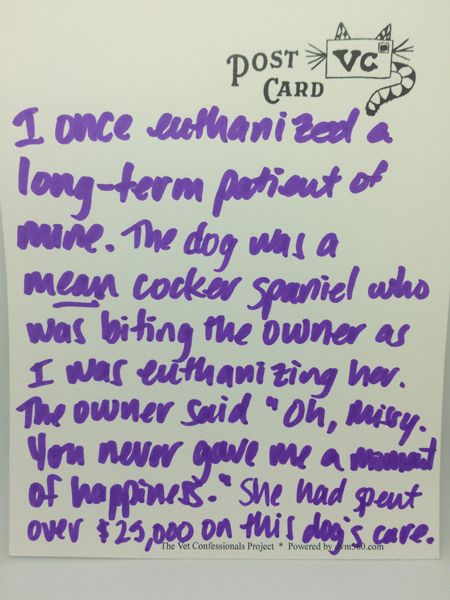 POST CARD VC
I once euthanized a
long-term patient of
mine. The dog was a
mean cocker spaniel who
was biting the owner as
I was euthanizing her.
The owner said "Oh, Missy.
You never gave me a moment
of happiness." She had spent
over $25,000 on this dog's care.
The Vet Confessionals Project * Powered by dvm360.com